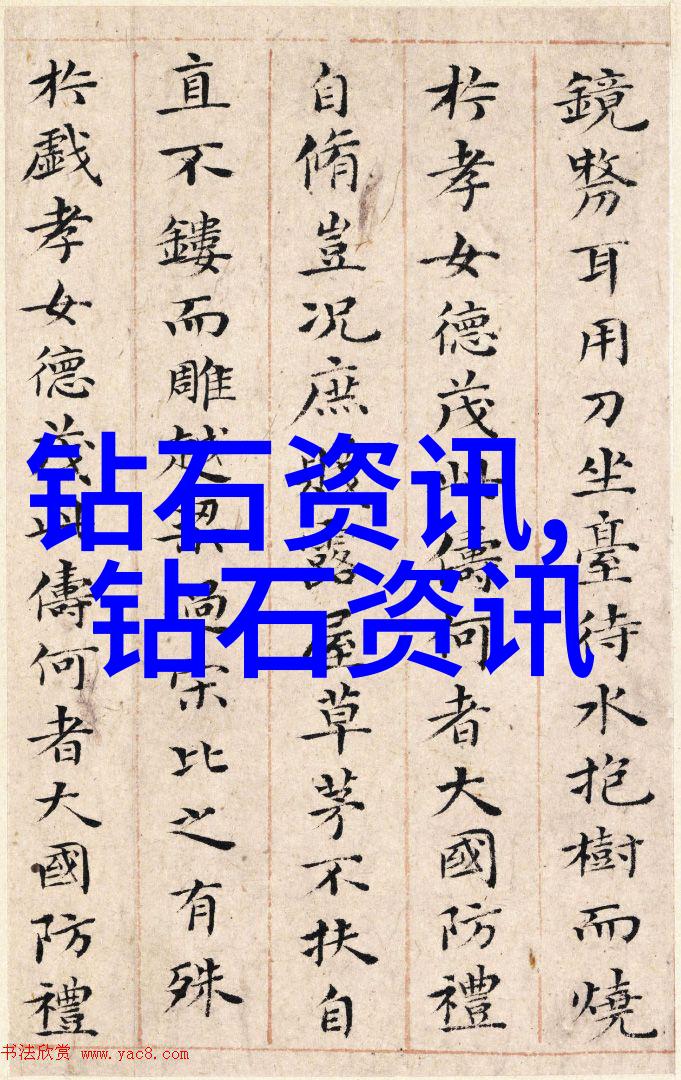 鏡剺耳用刀坐臺待水抱樹而燒
於孝女德茂此儔何者大國防禮
自脩豈况庶賤露屋草茅不扶自
直不鏤而雕越梁過宋比之有殊
於戲孝女德茂此儔何者大國防禮
钻石资讯,
钻石资讯
书法欣赏 www.yac8.com